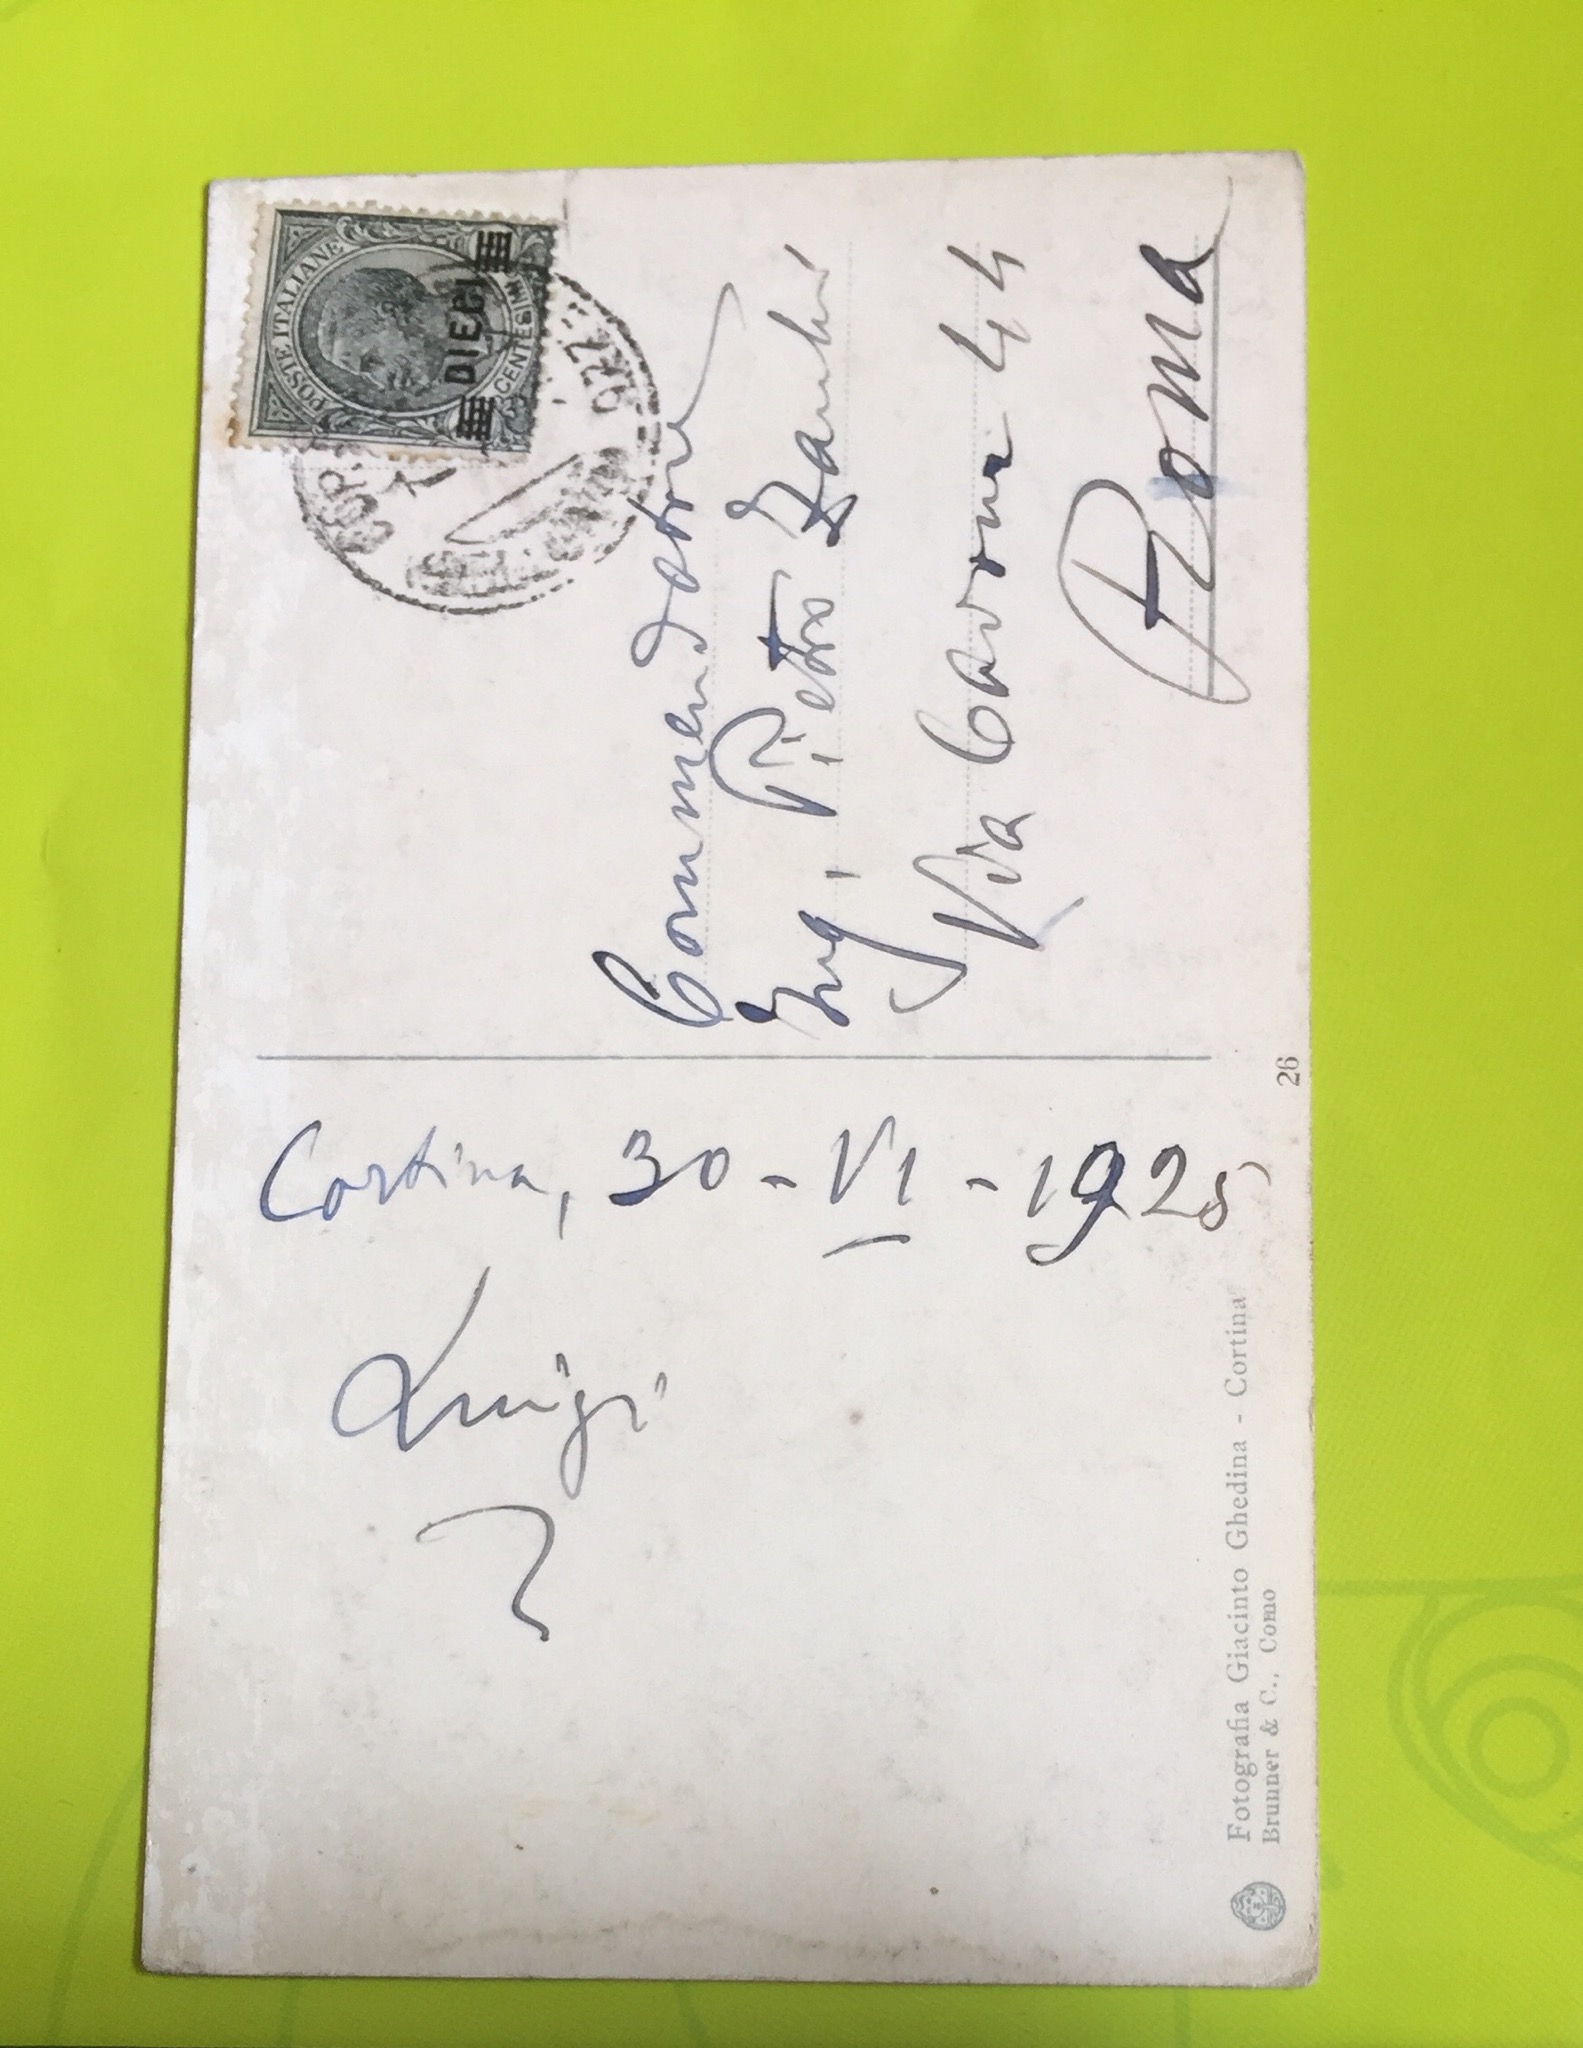 POSTE ITALIANE
DIECI
CENTESIMI
Commendatore
Ing. Pietro
Via Cavour 44
Roma
Cortina, 30-VI-1925
Luigi
26
Fotografia Giacinto Ghedina - Cortina
Brunner & C., Como